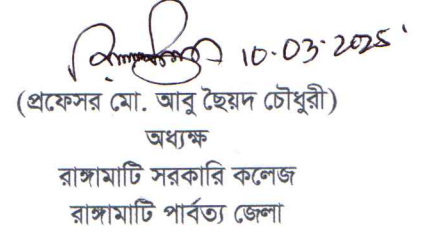 10.03.2025
(প্রফেসর মো. আবু ছৈয়দ চৌধুরী)
অধ্যক্ষ
রাঙ্গামাটি সরকারি কলেজ
রাঙ্গামাটি পার্বত্য জেলা